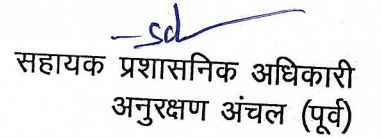 -sd
सहायक प्रशासनिक अधिकारी
अनुरक्षण अंचल (पूर्व)